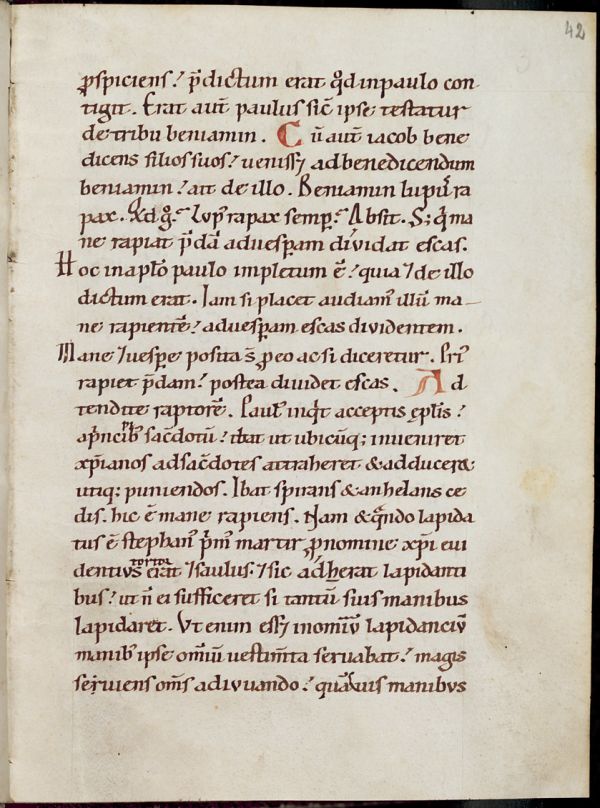 42
ꝓspiciens? p̄dictum erat qđ inpaulo con-
tigit. Erat aut̄ paulus sic̄ ipse testatur
de tribu beniamin. Cū aut̄ iacob bene
dicens filios suos? ueniss& ad benedicendum
beniamin? ait de illo. Beniamin lupus ra
pax. Qd g̊? Lupus rapax semper? Absit. S; q̄ ma
ne rapiat p̄dā aduesꝑam diuidat escas.
Hoc inapl̄o paulo impletum ē? quia ⁊ de illo
dictum erat. Iam si placet audiam' illū ma-
ne rapientē? aduesꝑam escas diuidentem.
Mane ⁊ uesꝑe posita s̄ ꝓ eo ac si diceretur. Pri'
rapiet p̄dam? postea diuidet escas. Ad
tendite raptorē. Paul' inq̇t acceptis epl̄is?
a pͥncipib; sac̄dotū? ibat ut ubicūq; inueniret
xp̄ianos ad sac̄dotes attraheret & adducer&
utiq; puniendos. Ibat spirans & anhelans ce
dis. hic ē mane rapiens. Nam & q̄ndo lapida
tus ē stephan' pͥm' martir ꝓ nomine xp̄i eui
dentius tortor erat ⁊ saulus. ⁊ sic adherat lapidanti
bus? ut n̄ ei sufficeret si tantū suis manibus
lapidaret. Vt enim ess& in omniū lapidanciū
manib' ipse omniū uestim̄ta seruabat? magis
seruiens om̄s adiuuando? quā suis manibus